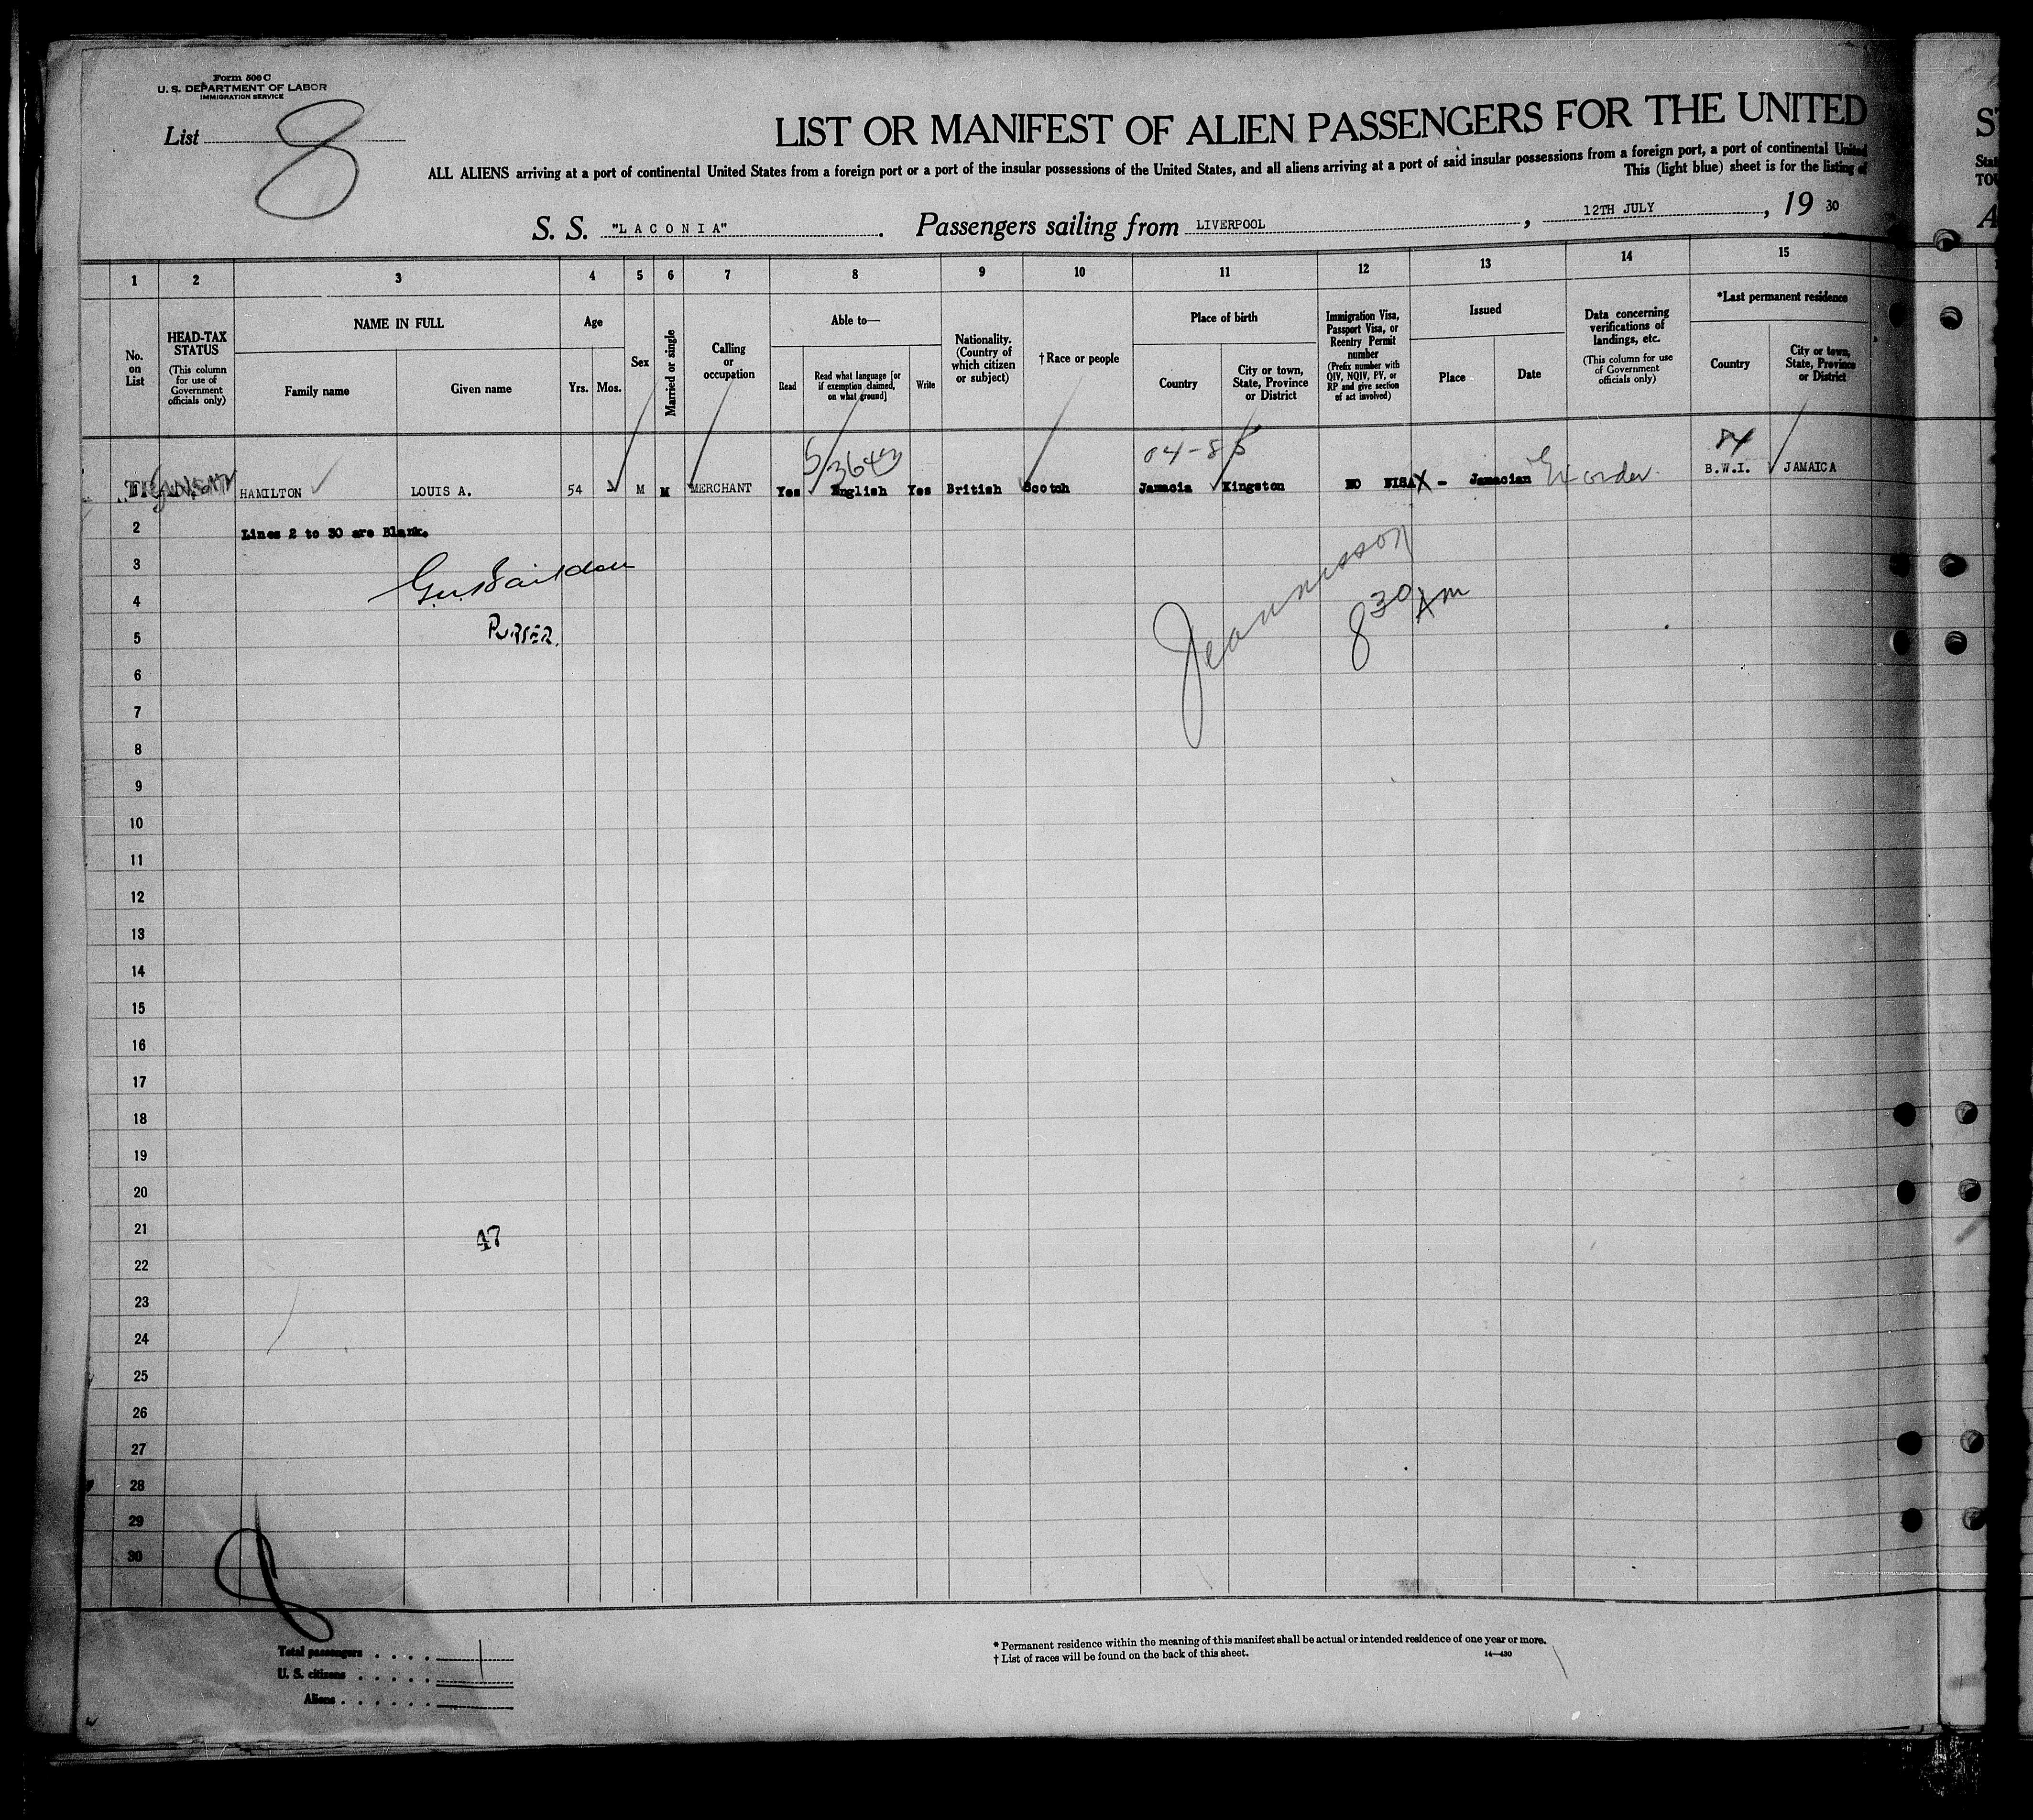 Form 500 C
U. S. DEPARTMENT OF LABOR
IMMIGRATION SERVICE
List 8
LIST OR MANIFEST OF ALIEN PASSENGERS FOR THE UNITED
ALL ALIENS arriving at a port of continental United States from a foreign port or a port of the insular possessions of the United States, and all aliens arriving at a port of said insular possessions from a foreign port, a port of continental United
This (light blue) sheet is for the listing of
S. S. "LACONIA". Passengers sailing from LIVERPOOL, 12TH JULY, 19 30
1 2 3 4 5 6 7 8 9 10 11 12 13 14 15
No. on List
HEAD-TAX STATUS (This column for use of Government officials only)
NAME IN FULL
Family name
Given name
Age
Yrs. Mos.
Sex
Married or single
Calling or occupation
Able to—
Read
Read what language [or if exemption claimed, on what ground]
Write
Nationality. (Country of which citizen or subject)
†Race or people
Place of birth
Country
City or town, State, Province or District
Immigration Visa, Passport Visa, or Reentry Permit number (Prefix number with QIV, NQIV, PV, or RP and give section of act involved)
Issued
Place
Date
Data concerning verifications of landings, etc. (This column for use of Government officials only)
*Last permanent residence
Country
City or town, State, Province or District
04-85
84
TRANSIT HAMILTON LOUIS A. 54 M M MERCHANT Yes English Yes British Scotch Jamacia Kingston NO VISA X - Jamacian order B.W.I. JAMAICA
2 Lines 2 to 30 are Blank.
3
4
PURSER.
8 30 AM
5
6
7
8
9
10
11
12
13
14
15
16
17
18
19
20
21
47
22
23
24
25
26
27
28
29
30
8
Total passengers . . . . 1
U. S. citizens . . . . .
Aliens . . . . . .
* Permanent residence within the meaning of this manifest shall be actual or intended residence of one year or more.
† List of races will be found on the back of this sheet.
14—430